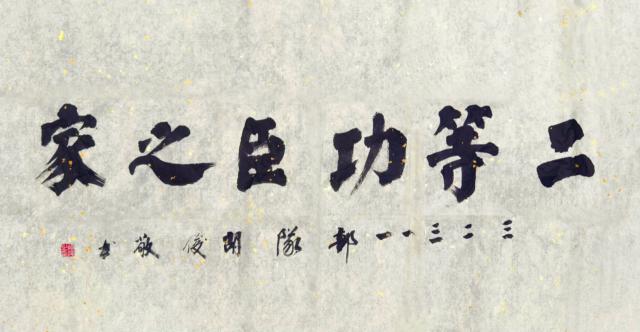 二等功臣之家
三二三一一部隊俊敬书